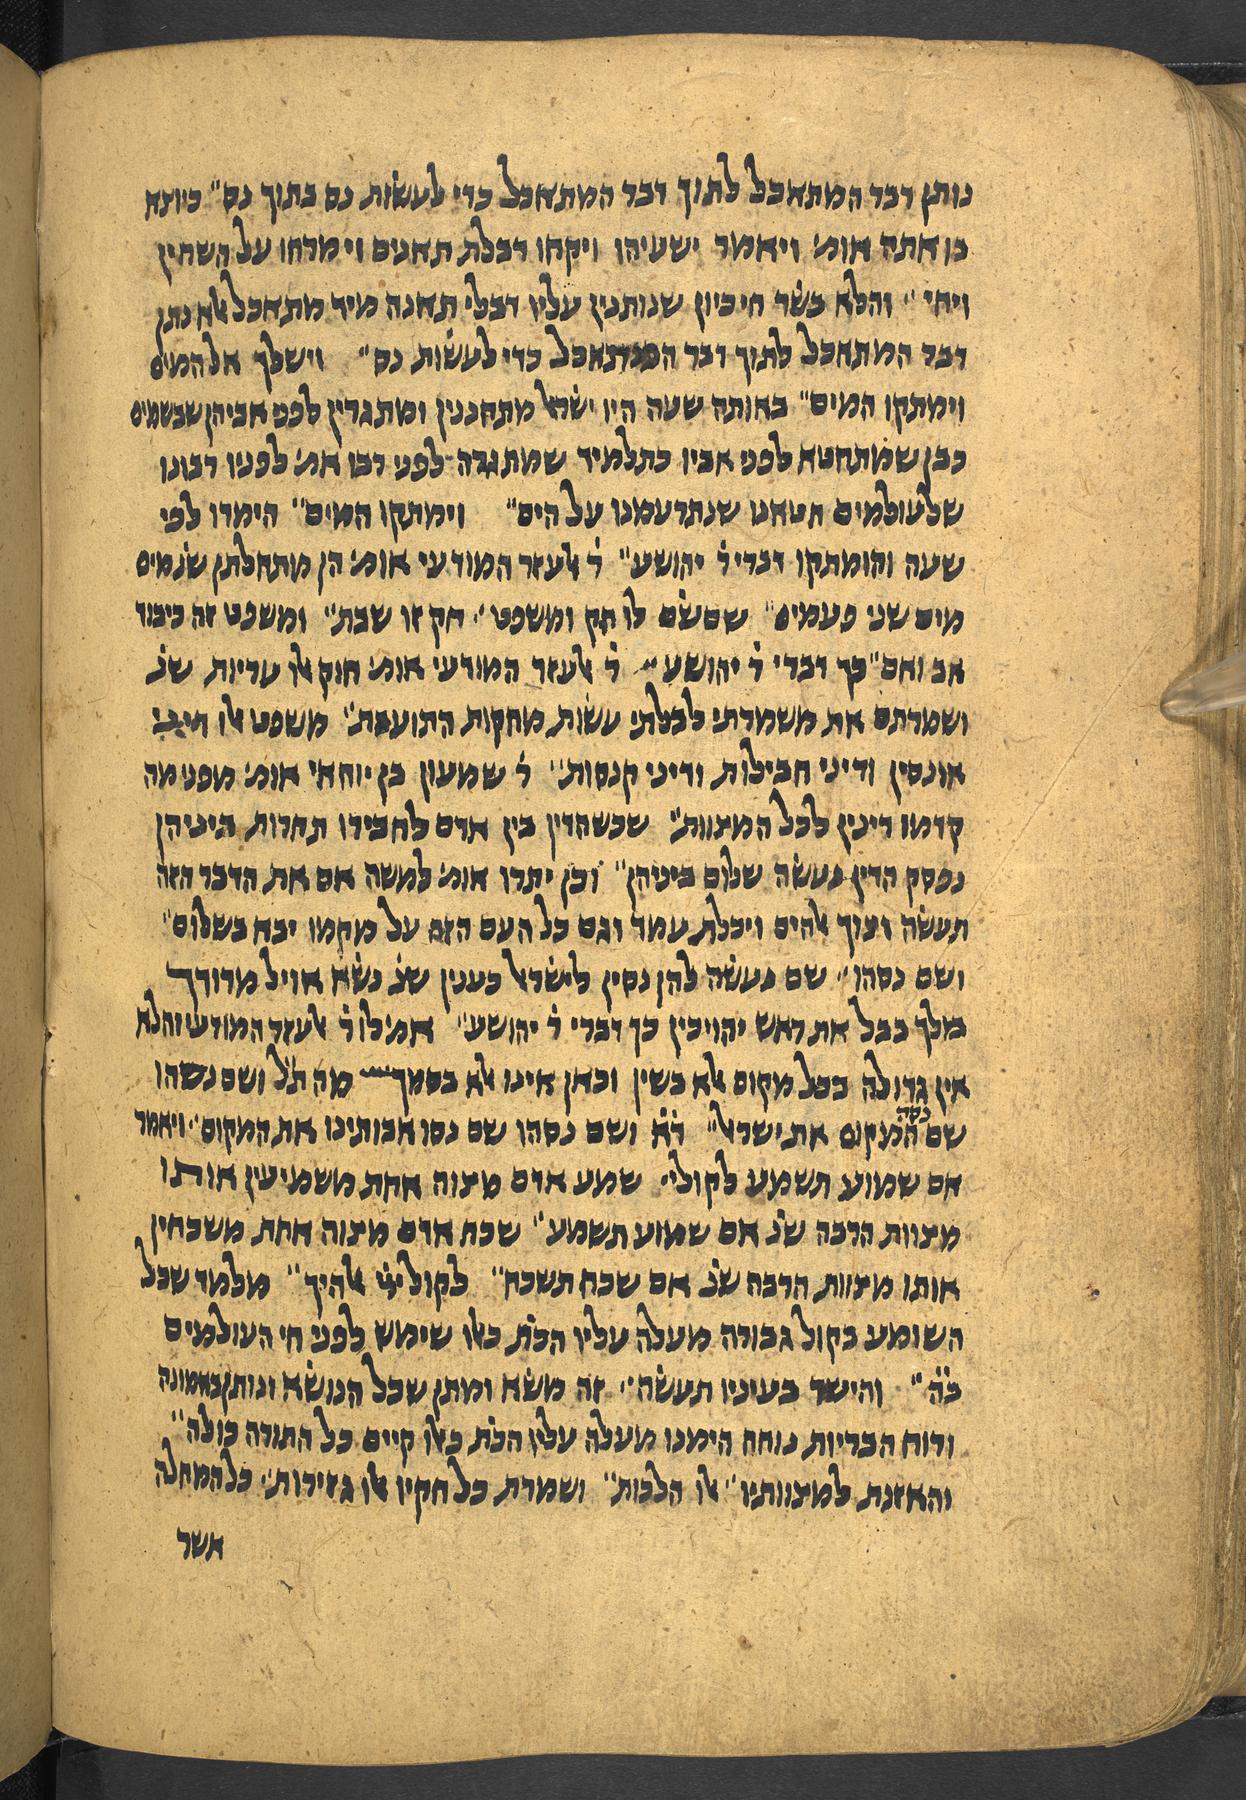 נותן דבר המתאכל לתוך דבר המתאכל כדי לעשות נס בתוך נס" כיוצא
בו אתה אומ' ויאמר ישעיהו ויקחו דבלת תאנים וימרחו על השחין
ויחי" והלא בשר חי כיון שנותנין עליו דבלי תאנה מיד מתאכל אלא נתן
דבר המתאכל לתוך דבר המתאכל כדי לעשות נס" וישלך אל המים
וימתקו המים" באותה שעה היו ישראל מתחננין ומתגדרין לפני אביהן שבשמים
כבן שמתחטא לפני אביו כתלמיד שמתגדר לפני רבו אמ' לפניו רבונו
שלעולמים חטאנו שנתרעמנו על הים" וימתקו המים" הימרו לפי
שעה והומתקו דברי ר' יהושע" ר' אלעזר המודעי אומ' הן מתחלתן שנ' מים
מים שני פעמים" שם שם לו חק ומשפט" חק זו שבת" ומשפט זה כיבוד
אב ואם" כך דברי ר' יהושע" ר' אלעזר המודעי אומ' חוק אלו עריות שנ'
ושמרתם את משמרתי לבלתי עשות מחקות התועבת" משפט אלו דיני
אונסין ודיני חבילות ודיני קנסות" ר' שמעון בן יוחאי אומ' מפני מה
קדמו דינין לכל המצוות" שכשהדין בין אדם לחבירו תחרות ביניהן
נפסק הדין נעשה שלום ביניהן" וכן יתרו אומ' למשה אם את הדבר הזה
תעשה וצוך אלהים ויכלת עמד וגם כל העם הזה על מקמו יבא בשלום"
ושם נסהו" שם נעשה להן נסין לישראל כענין שנ' נשא אויל מרודך
מלך בבל את ראש יהויכין כך דברי ר' יהושע" אמ' לו ר' אלעזר המודעי והלא
אין גדולה בכל מקום אלא בשין וכאן אינו אלא בסמך מה ת"ל ושם נסהו
שם נסה המקום את ישראל" ד"א ושם נסהו שם נסו אבותינו את המקום" ויאמר
אם שמוע תשמע לקול" שמע אדם מצוה אחת משמיעין אותו
מצוות הרבה שנ' אם שמוע תשמע" שכח אדם מצוה אחת משכחין
אותו מצוות הרבה שנ' אם שכח תשכח" לקול ייי אלהיך" מלמד שכל
השומע בקול גבורה מעלה עליו הכת' כאלו שימש לפני חי העולמים
ב'ה'" והישר בעיניו תעשה" זה משא ומתן שכל הנושא ונותן באמונה
ורוח הבריות נוחה הימנו מעלה עליו הכת' כאלו קיים כל התורה כולה"
והאזנת למצוותיו" אלו הלכות" ושמרת כל חקיו אלו גזירות" כל המחלה
אשר